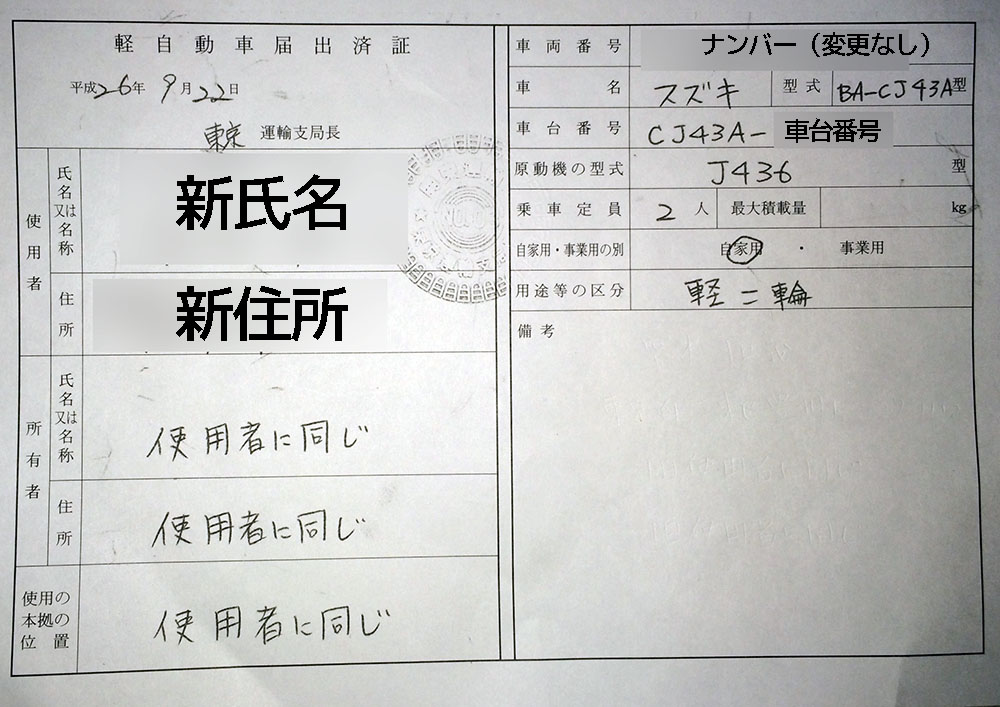 軽自動車届出済証
平成26年9月22日
東京 運輸支局長
使用者
氏名又は名称
新氏名
住所
新住所
所有者
氏名又は名称
使用者に同じ
住所
使用者に同じ
使用の本拠の位置
使用者に同じ
車両番号 ナンバー（変更なし）
車名 スズキ 型式 BA-CJ43A型
車台番号 CJ43A- 車台番号
原動機の型式 J436 型
乗車定員 2人 最大積載量 kg
自家用・事業用の別 自家用 ・ 事業用
用途等の区分 軽二輪
備考